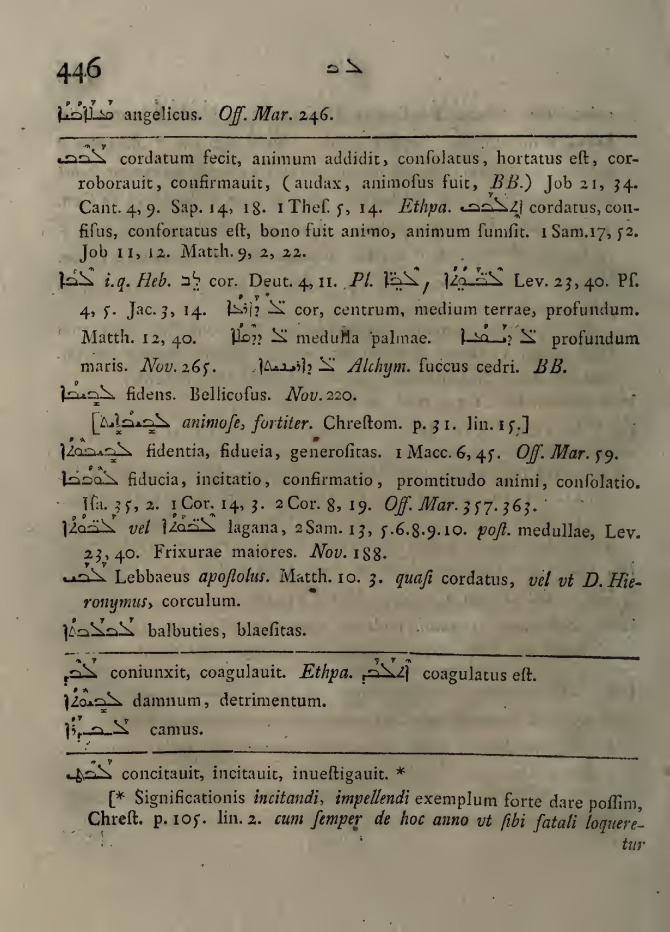 446 ܠܒ
ܡܠܐܟܝܐ angelicus. Off. Mar. 246.
ܠܒܒ cordatum fecit, animum addidit, conſolatus, hortatus eſt, cor-
roborauit, confirmauit, (audax, animoſus fuit, BB.) Job 21, 34.
Cant. 4, 9. Sap. 14, 18. 1 Theſ. 5, 14. Ethpa. ܐܬܠܒܒ cordatus, con-
fiſus, confortatus eſt, bono fuit animo, animum ſumſit. 1 Sam. 17, 52.
Job 11, 12. Matth. 9, 2, 22.
ܠܒܐ i.q. Heb. לב cor. Deut. 4, 11. Pl. ܠܒܐ, ܠܒܘܬܐ Lev. 23, 40. Pſ.
4, 5. Jac. 3, 14. ܠ ܕܐܪܥܐ cor, centrum, medium terrae, profundum.
Matth. 12, 40. ܠ ܕܕܩܠܐ medulla palmae. ܠ ܕܝܡܐ profundum
maris. Nov. 265. Alchym. ſuccus cedri. BB.
ܠܒܝܒܐ fidens. Bellicoſus. Nov. 220.
[ܠܒܝܒܐܝܬ animoſe, fortiter. Chreſtom. p. 31. lin. 15.]
ܠܒܝܒܘܬܐ fidentia, fidueia, generoſitas. 1 Macc. 6, 45. Off. Mar. 59.
ܠܘܒܒܐ fiducia, incitatio, confirmatio, promtitudo animi, conſolatio.
Iſa. 35, 2. 1 Cor. 14, 3. 2 Cor. 8, 19. Off. Mar. 357. 363.
ܠܒܘܬܐ vel ܠܒܘܬܐ lagana, 2 Sam. 13, 5.6.8.9.10. poſt. medullae, Lev.
23, 40. Frixurae maiores. Nov. 188.
ܠܒܝ Lebbaeus apoſtolus. Matth. 10. 3. quaſi cordatus, vel vt D. Hie-
ronymus, corculum.
balbuties, blaeſitas.
ܠܒܕ coniunxit, coagulauit. Ethpa. ܐܬܠܒܕ coagulatus eſt.
damnum, detrimentum.
camus.
ܠܒܛ concitauit, incitauit, inueſtigauit. *
[* Significationis incitandi, impellendi exemplum forte dare poſſim,
Chreſt. p. 105. lin. 2. cum ſemper de hoc anno vt ſibi fatali loquere-
tur